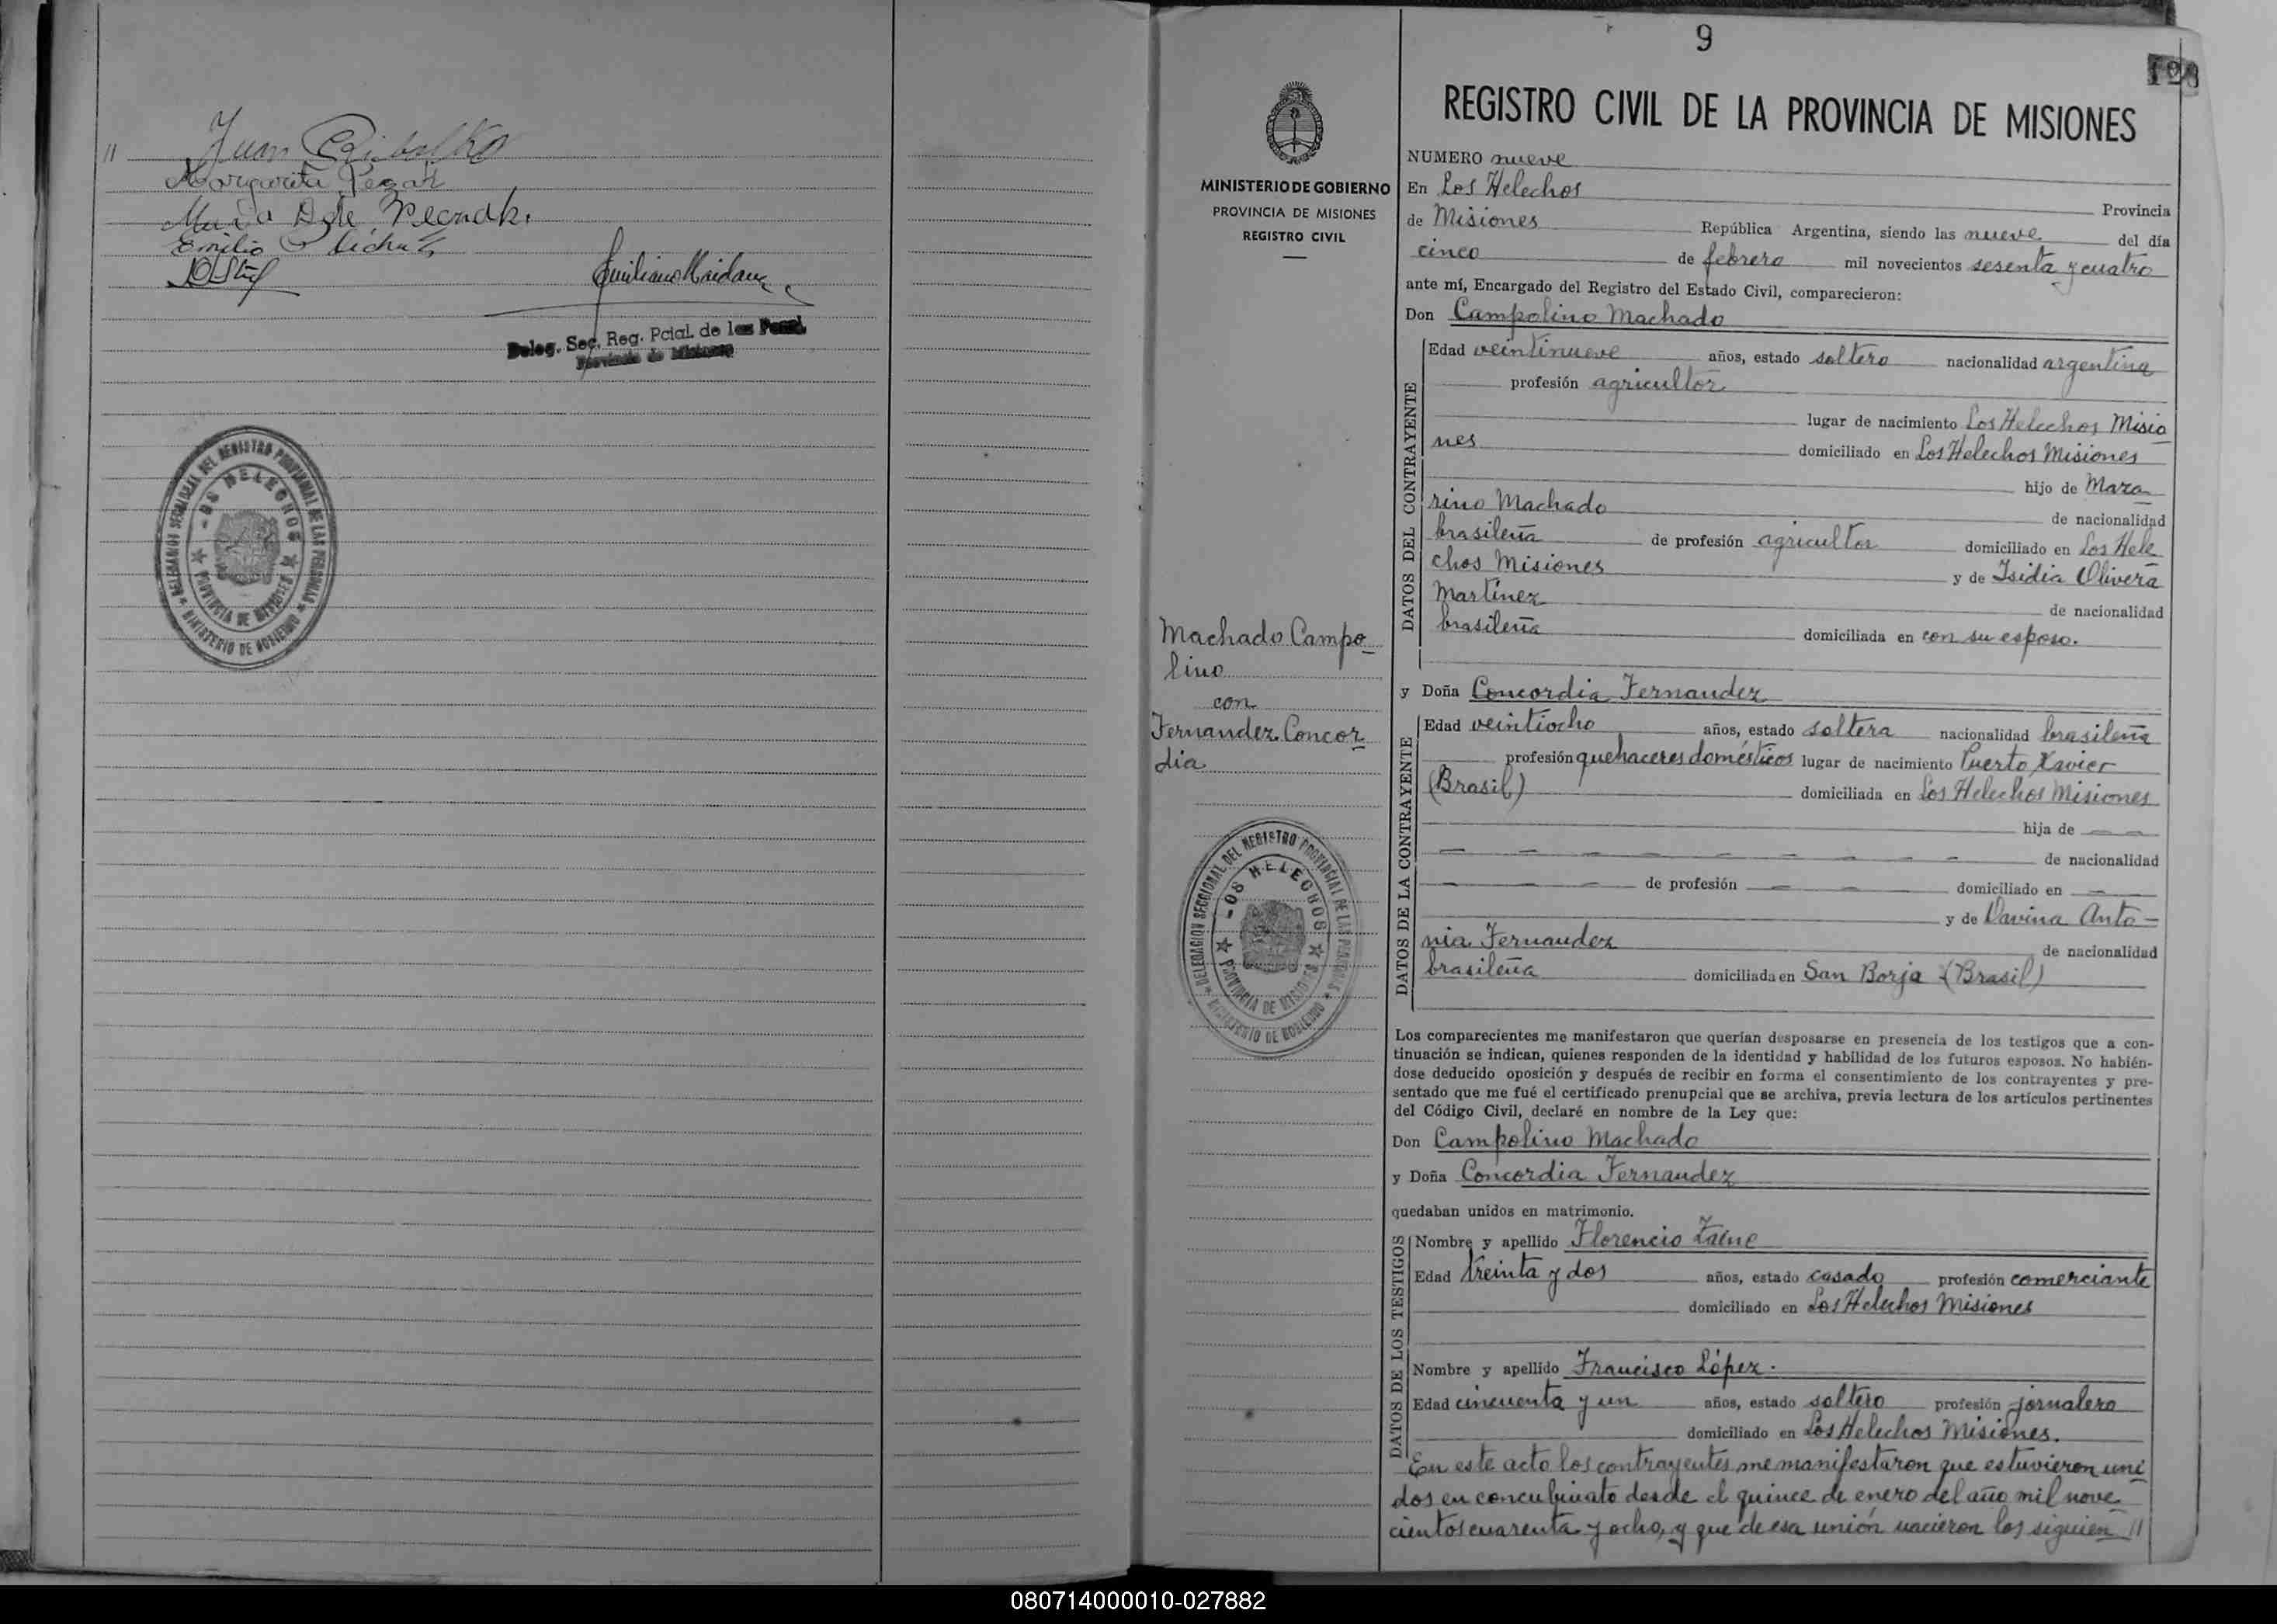 " Juan
Margarita
Maria
Emilio
Emiliano
Deleg. Sec. Reg. Pcial. de las Pers.
Provincia de Misiones
DELEGACION SECCIONAL DEL REGISTRO PROVINCIAL DE LAS PERSONAS
LOS HELECHOS
PROVINCIA DE MISIONES
MINISTERIO DE GOBIERNO
9
128
MINISTERIO DE GOBIERNO
PROVINCIA DE MISIONES
REGISTRO CIVIL
Machado Campo
lino
con
Fernandez Concor
dia
DELEGACION SECCIONAL DEL REGISTRO PROVINCIAL DE LAS PERSONAS
LOS HELECHOS
PROVINCIA DE MISIONES
MINISTERIO DE GOBIERNO
REGISTRO CIVIL DE LA PROVINCIA DE MISIONES
NUMERO nueve
En Los Helechos Provincia
de Misiones República Argentina, siendo las nueve del día
cinco de febrero mil novecientos sesenta y cuatro
ante mí, Encargado del Registro del Estado Civil, comparecieron:
Don Campolino Machado
DATOS DEL CONTRAYENTE
Edad veintinueve años, estado soltero nacionalidad argentina
profesión agricultor
lugar de nacimiento Los Helechos Misio
nes domiciliado en Los Helechos Misiones
hijo de Maza
rino Machado de nacionalidad
brasileña de profesión agricultor domiciliado en Los Hele
chos Misiones y de Isidia Olivera
Martinez de nacionalidad
brasileña domiciliada en con su esposo.
y Doña Concordia Fernandez
DATOS DE LA CONTRAYENTE
Edad veintiocho años, estado soltera nacionalidad brasileña
profesión quehaceres domésticos lugar de nacimiento Puerto Xavier
(Brasil) domiciliada en Los Helechos Misiones
hija de — —
— — — — — — — — — de nacionalidad
— — — de profesión — — — domiciliado en —
y de Davina Anto-
nia Fernandez de nacionalidad
brasileña domiciliada en San Borja (Brasil)
Los comparecientes me manifestaron que querían desposarse en presencia de los testigos que a con-
tinuación se indican, quienes responden de la identidad y habilidad de los futuros esposos. No habién-
dose deducido oposición y después de recibir en forma el consentimiento de los contrayentes y pre-
sentado que me fué el certificado prenupcial que se archiva, previa lectura de los artículos pertinentes
del Código Civil, declaré en nombre de la Ley que:
Don Campolino Machado
y Doña Concordia Fernandez
quedaban unidos en matrimonio.
DATOS DE LOS TESTIGOS
Nombre y apellido Florencio
Edad treinta y dos años, estado casado profesión comerciante
domiciliado en Los Helechos Misiones
Nombre y apellido Francisco López.
Edad cincuenta y un años, estado soltero profesión jornalero
domiciliado en Los Helechos Misiones.
En este acto los contrayentes me manifestaron que estuvieron uni
dos en concubinato desde el quince de enero del año mil nove
cientos cuarenta y ocho, y que de esa unión nacieron los siguien "
080714000010-027882